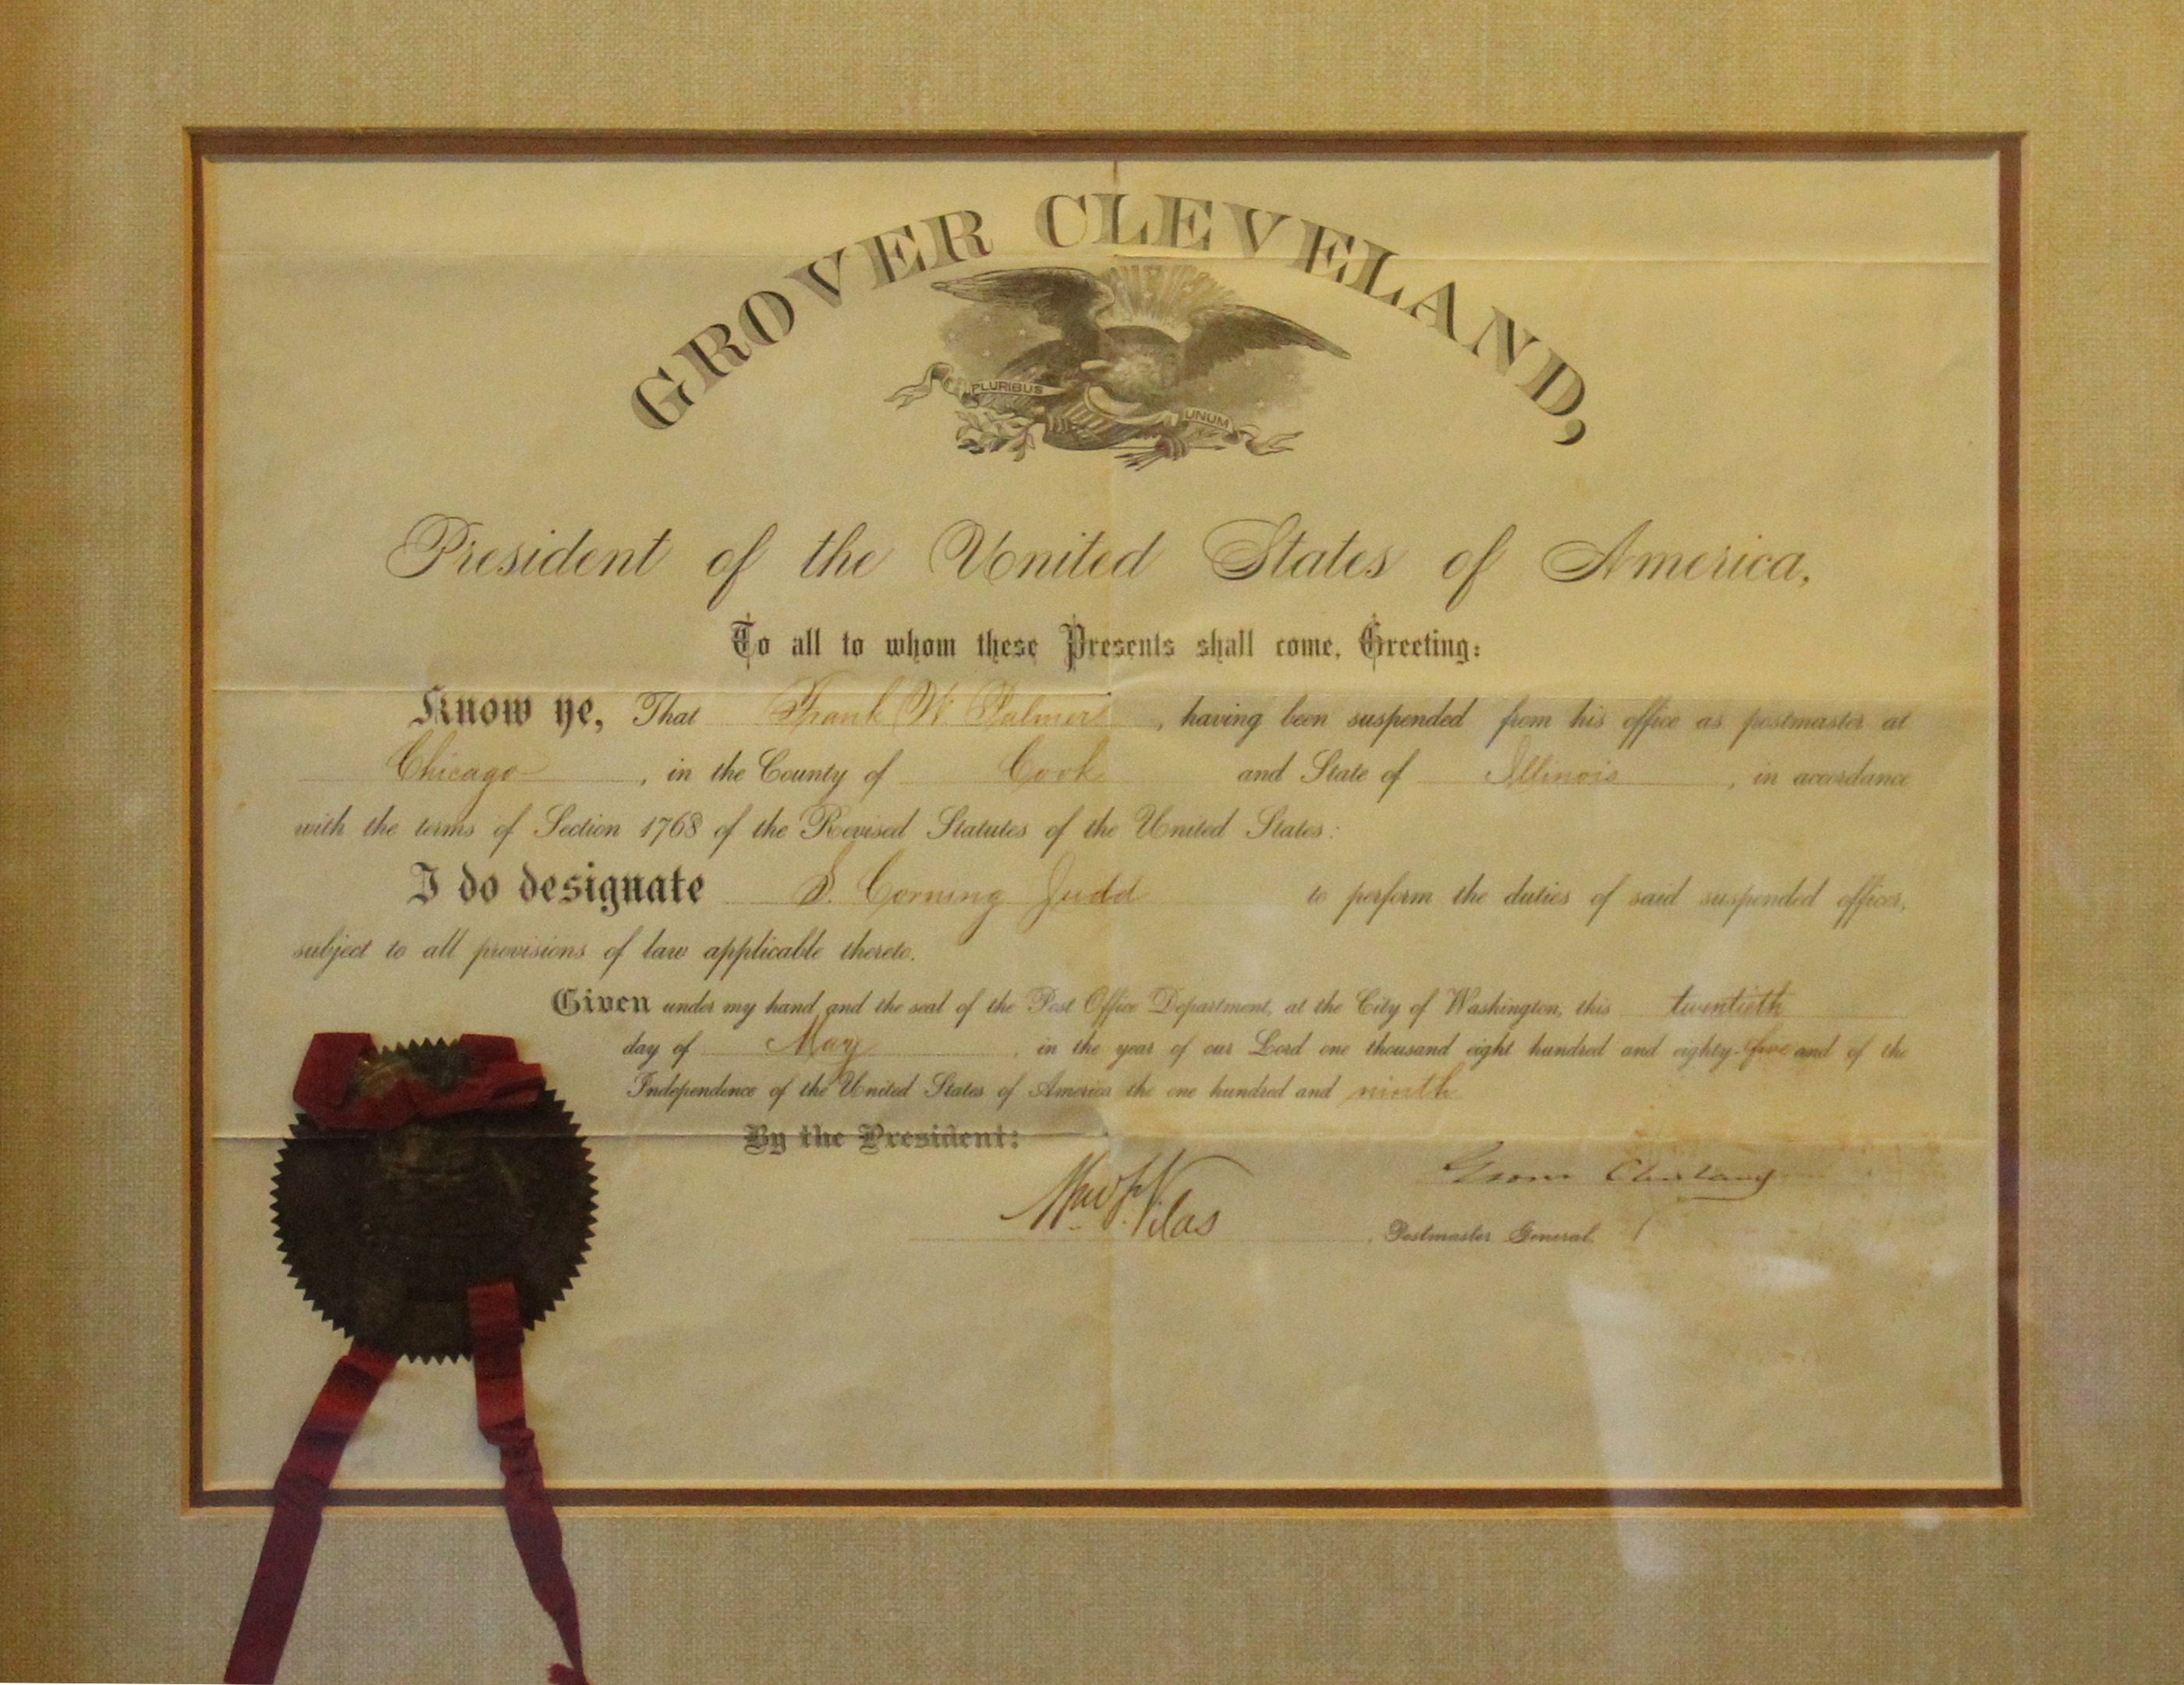 GROVER CLEVELAND,
PLURIBUS UNUM
President of the United States of America,
To all to whom these Presents shall come, Greeting:
Know ye, That Frank W Palmer, having been suspended from his office as postmaster at
Chicago, in the County of Cook and State of Illinois, in accordance
with the terms of Section 1768 of the Revised Statutes of the United States:
I do designate S. Corning Judd to perform the duties of said suspended officer,
subject to all provisions of law applicable thereto.
Given under my hand and the seal of the Post Office Department, at the City of Washington, this twentieth
day of May, in the year of our Lord one thousand eight hundred and eighty-five and of the
Independence of the United States of America the one hundred and ninth
By the President:
Grover Cleveland
Wm F. Vilas, Postmaster General.